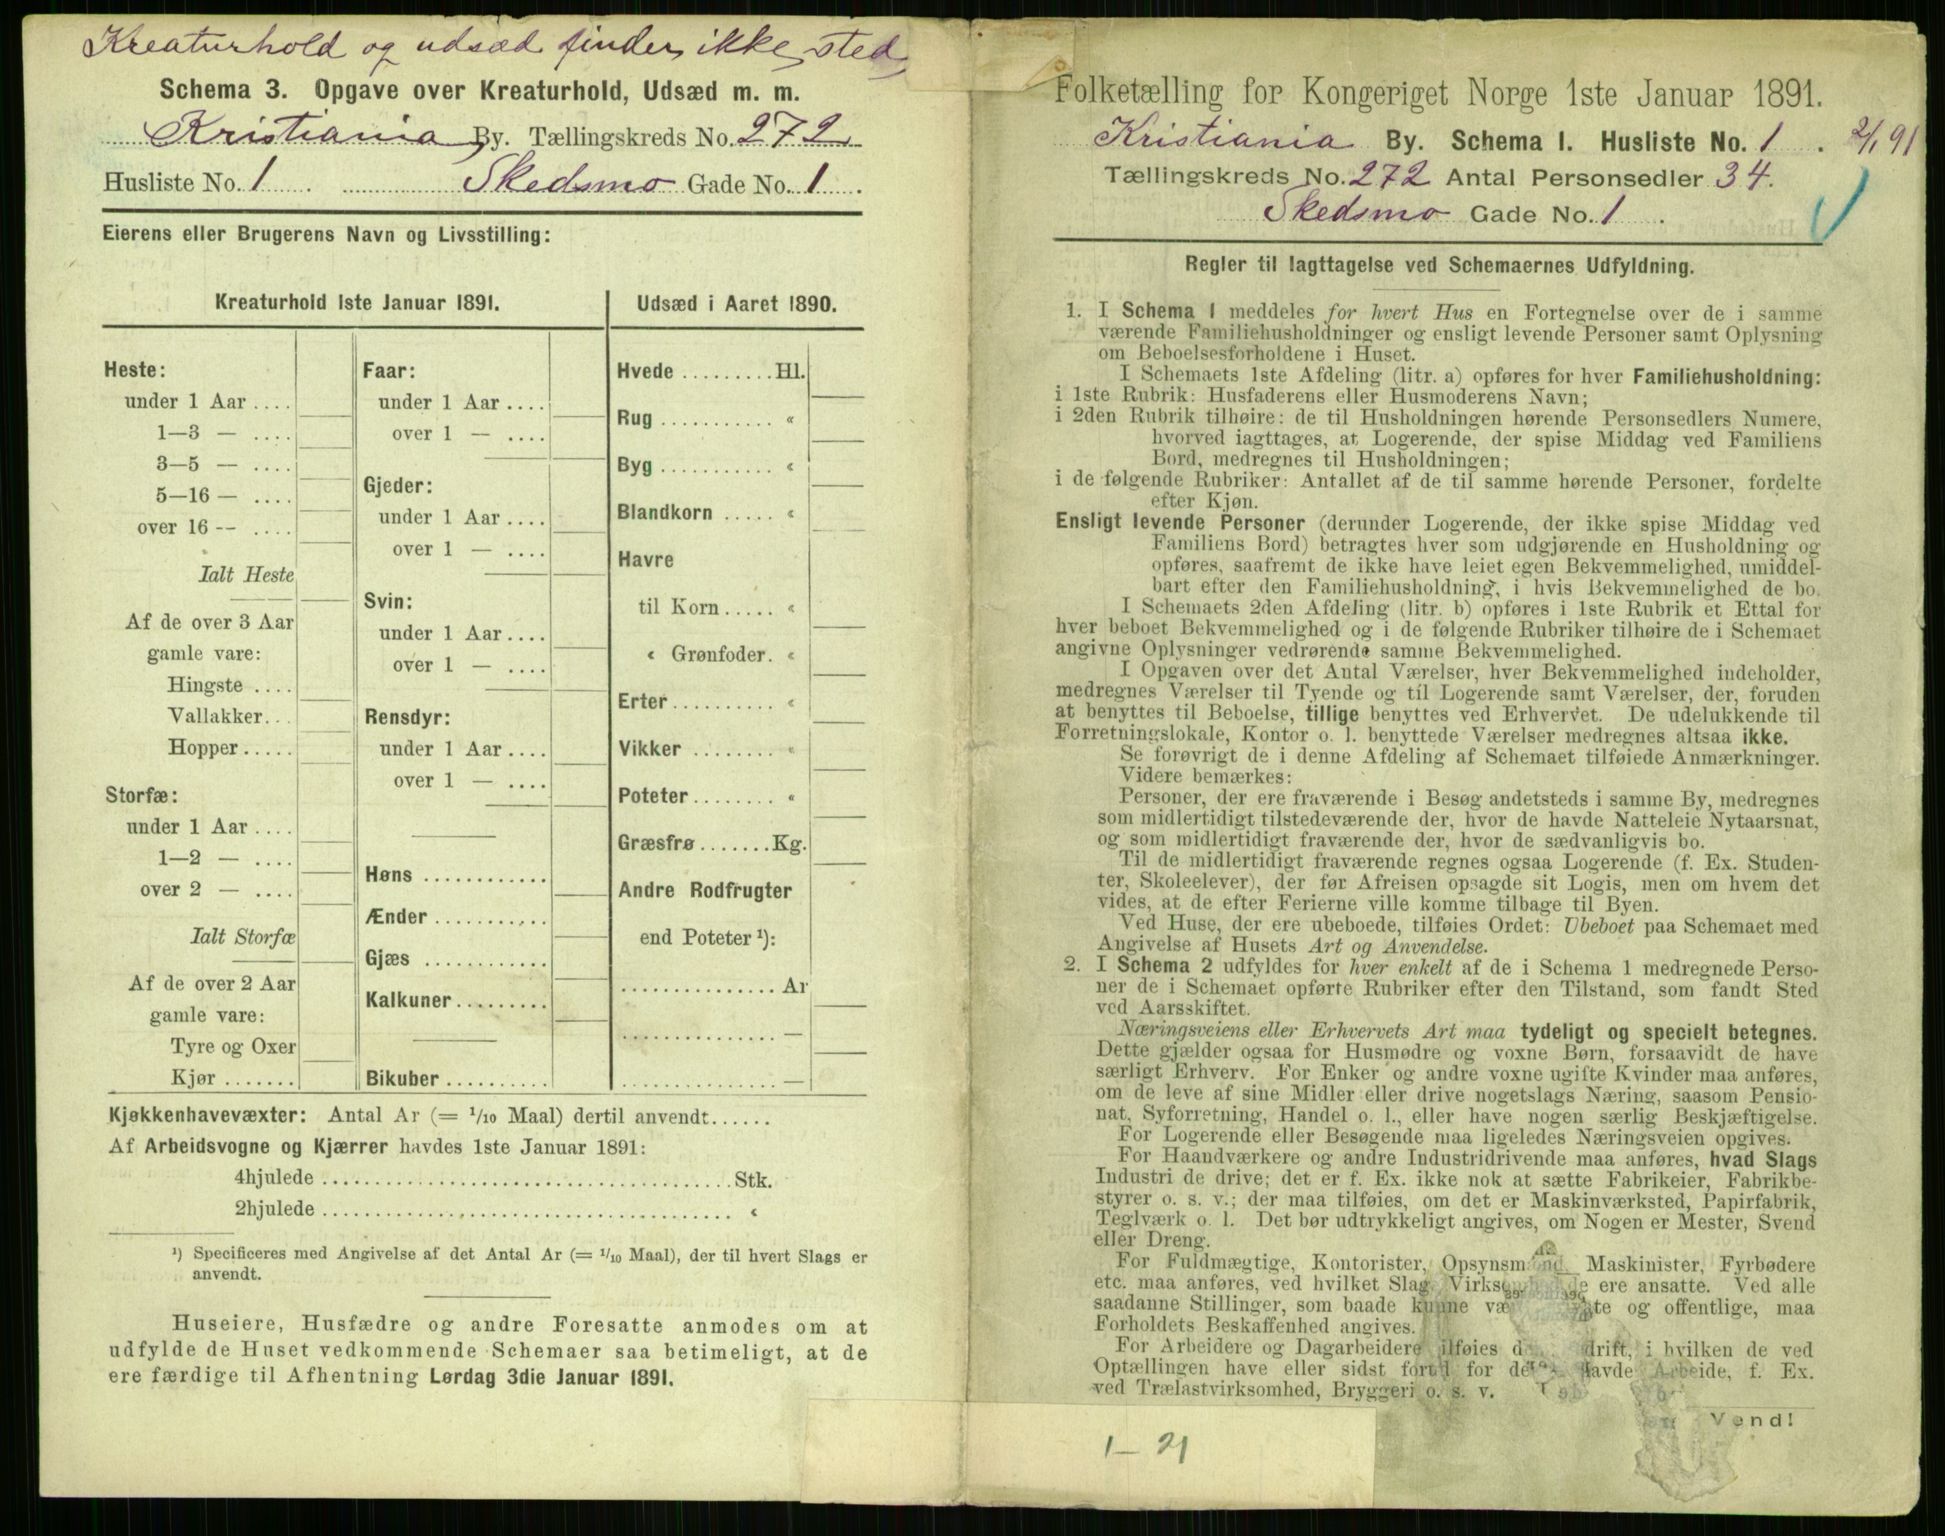 Kreaturhold og udsæd finder ikke sted
Schema 3. Opgave over Kreaturhold, Udsæd m. m.
Kristiania By. Tællingskreds No. 272
Husliste No. 1 Skedsmo Gade No. 1.
Eierens eller Brugerens Navn og Livsstilling:
Kreaturhold 1ste Januar 1891.
Heste:
under 1 Aar ....
1—3 — ....
3—5 — ....
5—16 — ....
over 16 — ....
Ialt Heste
Af de over 3 Aar
gamle vare:
Hingste ....
Vallakker...
Hopper.....
Storfæ:
under 1 Aar ....
1—2 — ....
over 2 — ....
Ialt Storfæ
Af de over 2 Aar
gamle vare:
Tyre og Oxer
Kjør .......
Faar:
under 1 Aar ....
over 1 — ....
Gjeder:
under 1 Aar ....
over 1 — ....
Svin:
under 1 Aar ....
over 1 — ....
Rensdyr:
under 1 Aar ....
over 1 — ....
Høns ............
Ænder ...........
Gjæs ............
Kalkuner.........
Bikuber ..........
Udsæd i Aaret 1890.
Hvede .........Hl.
Rug ........... «
Byg ........... «
Blandkorn ..... «
Havre
til Korn ..... «
« Grønfoder. «
Erter.......... «
Vikker ........ «
Poteter........ «
Græsfrø .......Kg.
Andre Rodfrugter
end Poteter ¹):
...............Ar
...............—
...............—
Kjøkkenhavevæxter: Antal Ar (= 1/10 Maal) dertil anvendt......
Af Arbeidsvogne og Kjærrer havdes 1ste Januar 1891:
4hjulede ....................................Stk.
2hjulede .................................... «
¹) Specificeres med Angivelse af det Antal Ar (= 1/10 Maal), der til hvert Slags er
anvendt.
Huseiere, Husfædre og andre Foresatte anmodes om at
udfylde de Huset vedkommende Schemaer saa betimeligt, at de
ere færdige til Afhentning Lørdag 3die Januar 1891.
Folketælling for Kongeriget Norge 1ste Januar 1891.
Kristiania By. Schema I. Husliste No. 1. 2/1 91
Tællingskreds No. 272 Antal Personsedler 34.
Skedsmo Gade No. 1.
Regler til Iagttagelse ved Schemaernes Udfyldning.
1. I Schema 1 meddeles for hvert Hus en Fortegnelse over de i samme
værende Familiehusholdninger og ensligt levende Personer samt Oplysning
om Beboelsesforholdene i Huset.
I Schemaets 1ste Afdeling (litr. a) opføres for hver Familiehusholdning:
i 1ste Rubrik: Husfaderens eller Husmoderens Navn;
i 2den Rubrik tilhøire: de til Husholdningen hørende Personsedlers Numere,
hvorved iagttages, at Logerende, der spise Middag ved Familiens
Bord, medregnes til Husholdningen;
i de følgende Rubriker: Antallet af de til samme hørende Personer, fordelte
efter Kjøn.
Ensligt levende Personer (derunder Logerende, der ikke spise Middag ved
Familiens Bord) betragtes hver som udgjørende en Husholdning og
opføres, saafremt de ikke have leiet egen Bekvemmelighed, umiddel-
bart efter den Familiehusholdning, i hvis Bekvemmelighed de bo.
I Schemaets 2den Afdeling (litr. b) opføres i 1ste Rubrik et Ettal for
hver beboet Bekvemmelighed og i de følgende Rubriker tilhøire de i Schemaet
angivne Oplysninger vedrørende samme Bekvemmelighed.
I Opgaven over det Antal Værelser, hver Bekvemmelighed indeholder,
medregnes Værelser til Tyende og til Logerende samt Værelser, der, foruden
at benyttes til Beboelse, tillige benyttes ved Erhvervet. De udelukkende til
Forretningslokale, Kontor o. l. benyttede Værelser medregnes altsaa ikke.
Se forøvrigt de i denne Afdeling af Schemaet tilføiede Anmærkninger.
Videre bemærkes:
Personer, der ere fraværende i Besøg andetsteds i samme By, medregnes
som midlertidigt tilstedeværende der, hvor de havde Natteleie Nytaarsnat,
og som midlertidigt fraværende der, hvor de sædvanligvis bo.
Til de midlertidigt fraværende regnes ogsaa Logerende (f. Ex. Studen-
ter, Skoleelever), der før Afreisen opsagde sit Logis, men om hvem det
vides, at de efter Ferierne ville komme tilbage til Byen.
Ved Huse, der ere ubeboede, tilføies Ordet: Ubeboet paa Schemaet med
Angivelse af Husets Art og Anvendelse.
2. I Schema 2 udfyldes for hver enkelt af de i Schema 1 medregnede Perso-
ner de i Schemaet opførte Rubriker efter den Tilstand, som fandt Sted
ved Aarsskiftet.
Næringsveiens eller Erhvervets Art maa tydeligt og specielt betegnes.
Dette gjælder ogsaa for Husmødre og voxne Børn, forsaavidt de have
særligt Erhverv. For Enker og andre voxne ugifte Kvinder maa anføres,
om de leve af sine Midler eller drive nogetslags Næring, saasom Pensio-
nat, Syforretning, Handel o. l., eller have nogen særlig Beskjæftigelse.
For Logerende eller Besøgende maa ligeledes Næringsveien opgives.
For Haandværkere og andre Industridrivende maa anføres, hvad Slags
Industri de drive; det er f. Ex. ikke nok at sætte Fabrikeier, Fabrikbe-
styrer o. s. v.; der maa tilføies, om det er Maskinværksted, Papirfabrik,
Teglværk o. l. Det bør udtrykkeligt angives, om Nogen er Mester, Svend
eller Dreng.
For Fuldmægtige, Kontorister, Opsynsmænd, Maskinister, Fyrbødere
etc. maa anføres, ved hvilket Slags Virksomhed de ere ansatte. Ved alle
saadanne Stillinger, som baade kunne være private og offentlige, maa
Forholdets Beskaffenhed angives.
For Arbeidere og Dagarbeidere tilføies den Bedrift, i hvilken de ved
Optællingen have eller sidst forud for denne havde Arbeide, f. Ex.
ved Trælastvirksomhed, Bryggeri o. s. v.
Vend!
1 — 21